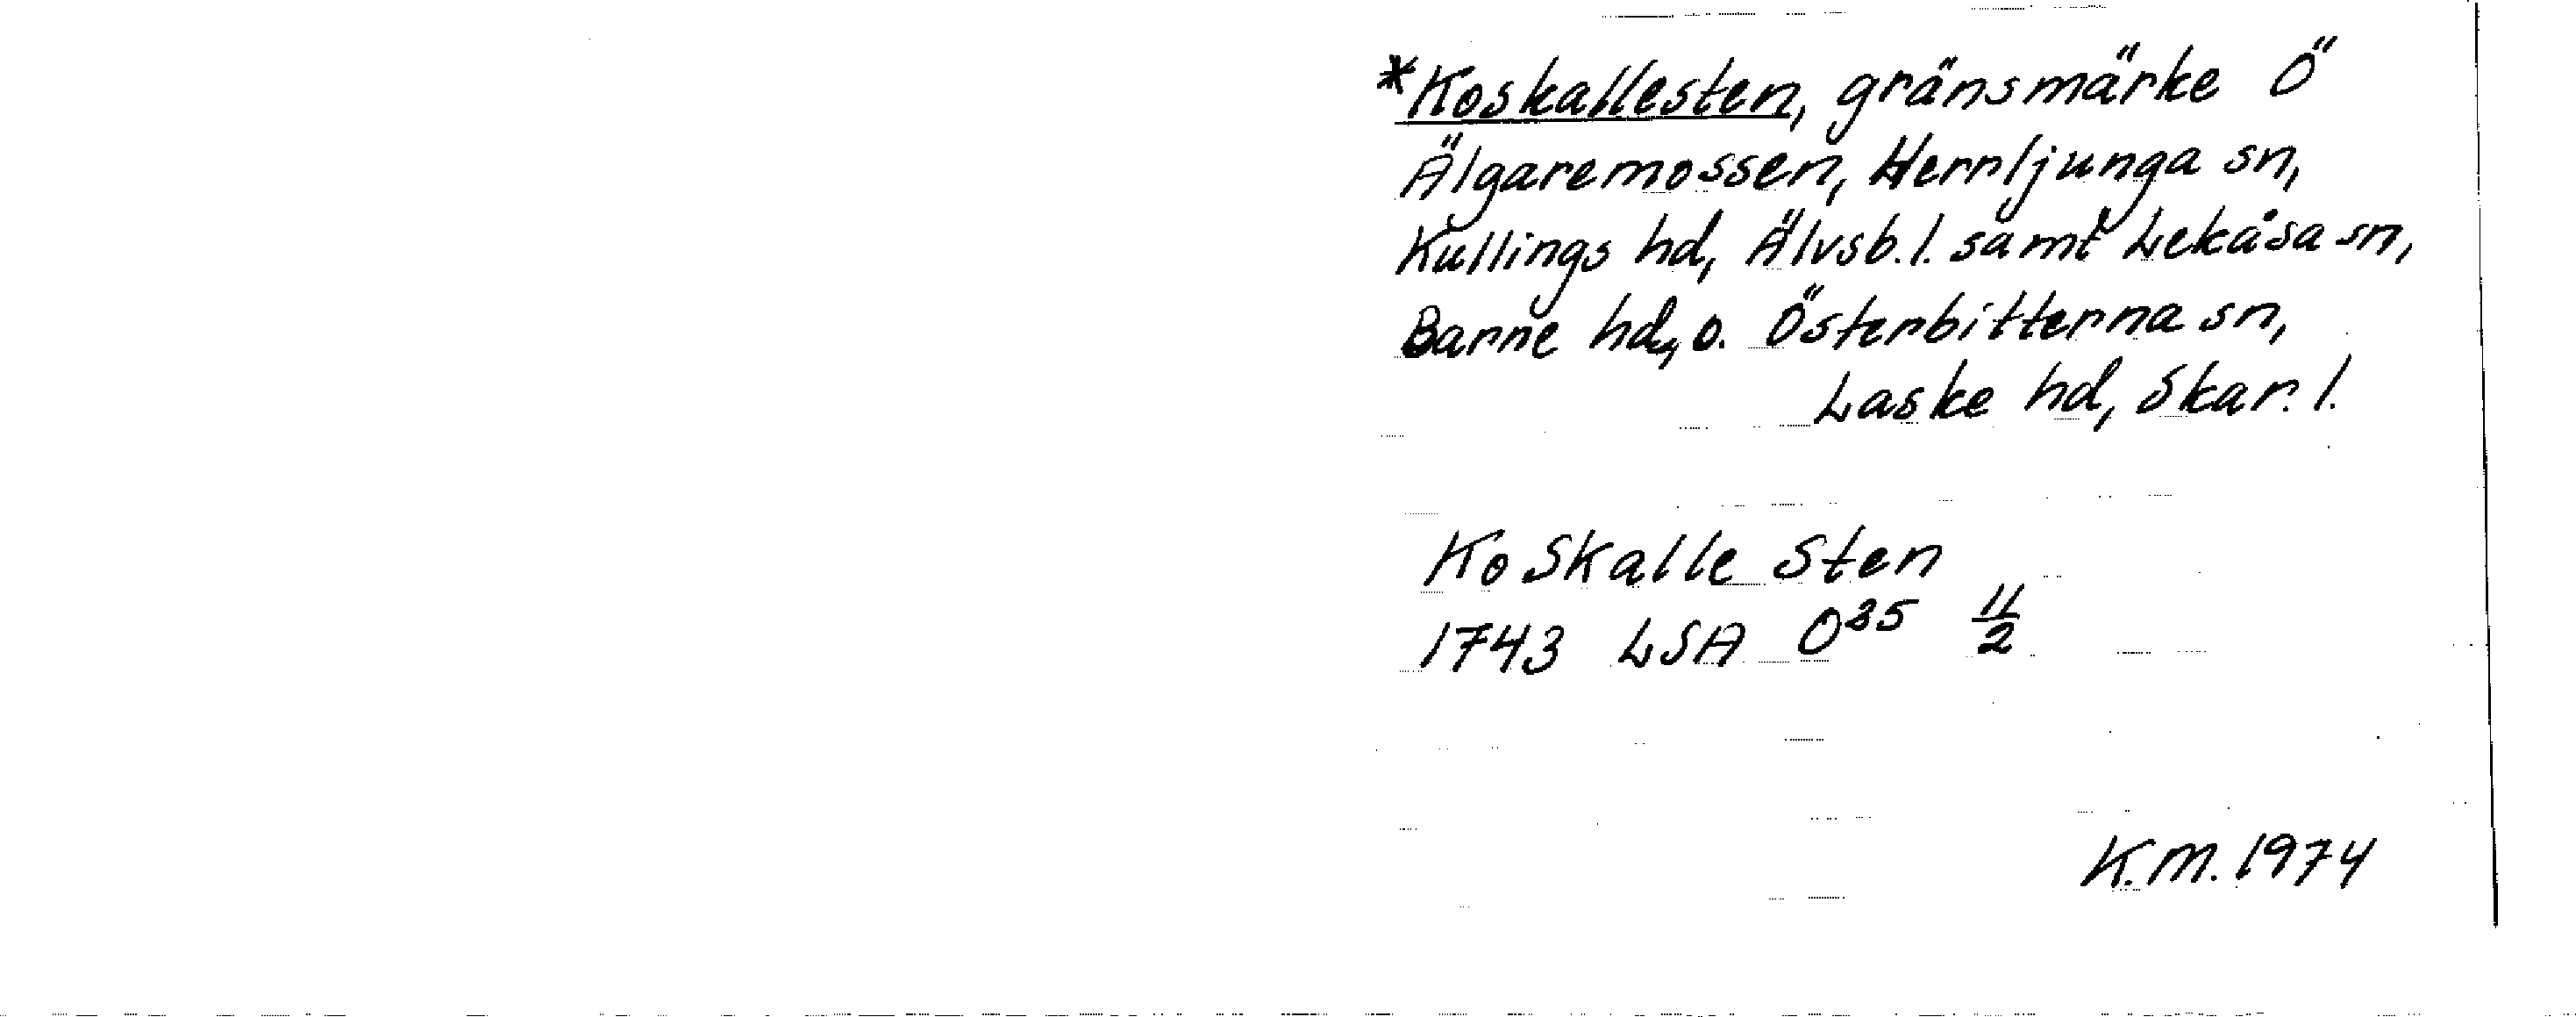 *Koskallesten, gränsmärke Ö
Älgaremossen, Herrljunga sn,
Kullings hd, Älvsb.l. samt Lekåsa sn,
Barne hd, o. Österbitterna sn,
Laske hd, Skar.l.
Ko Skalle Sten
1743 LSA O35 11/2
K.M. 1974